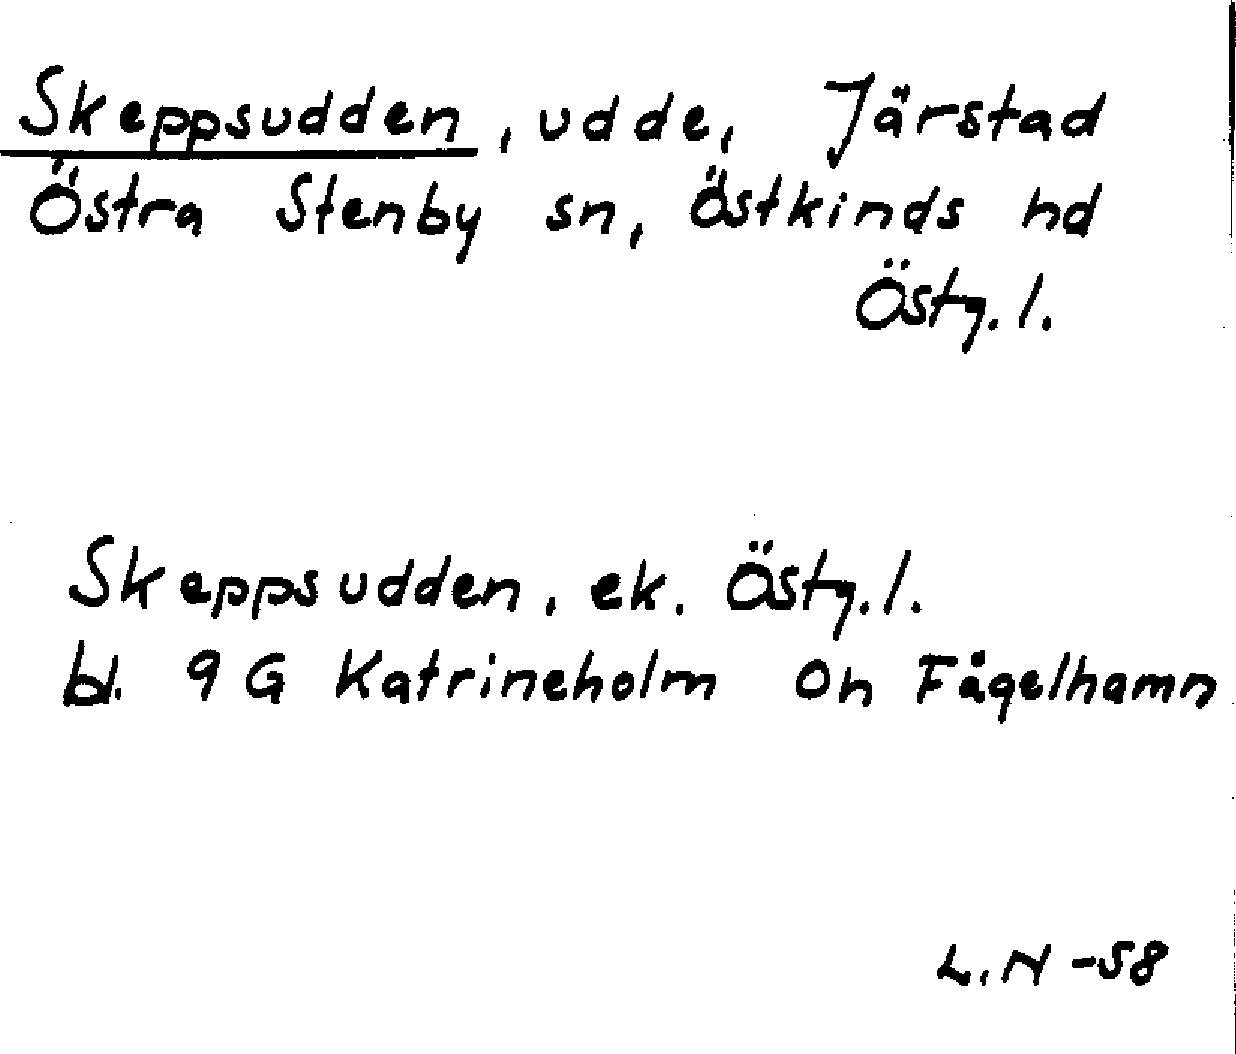 Skeppsudden, udde, Järstad
Östra Stenby sn, Östkinds hd
Östg. l.
Skeppsudden, ek. Östg. l.
bl. 9 G Katrineholm Oh Fågelhamn
L. N -58